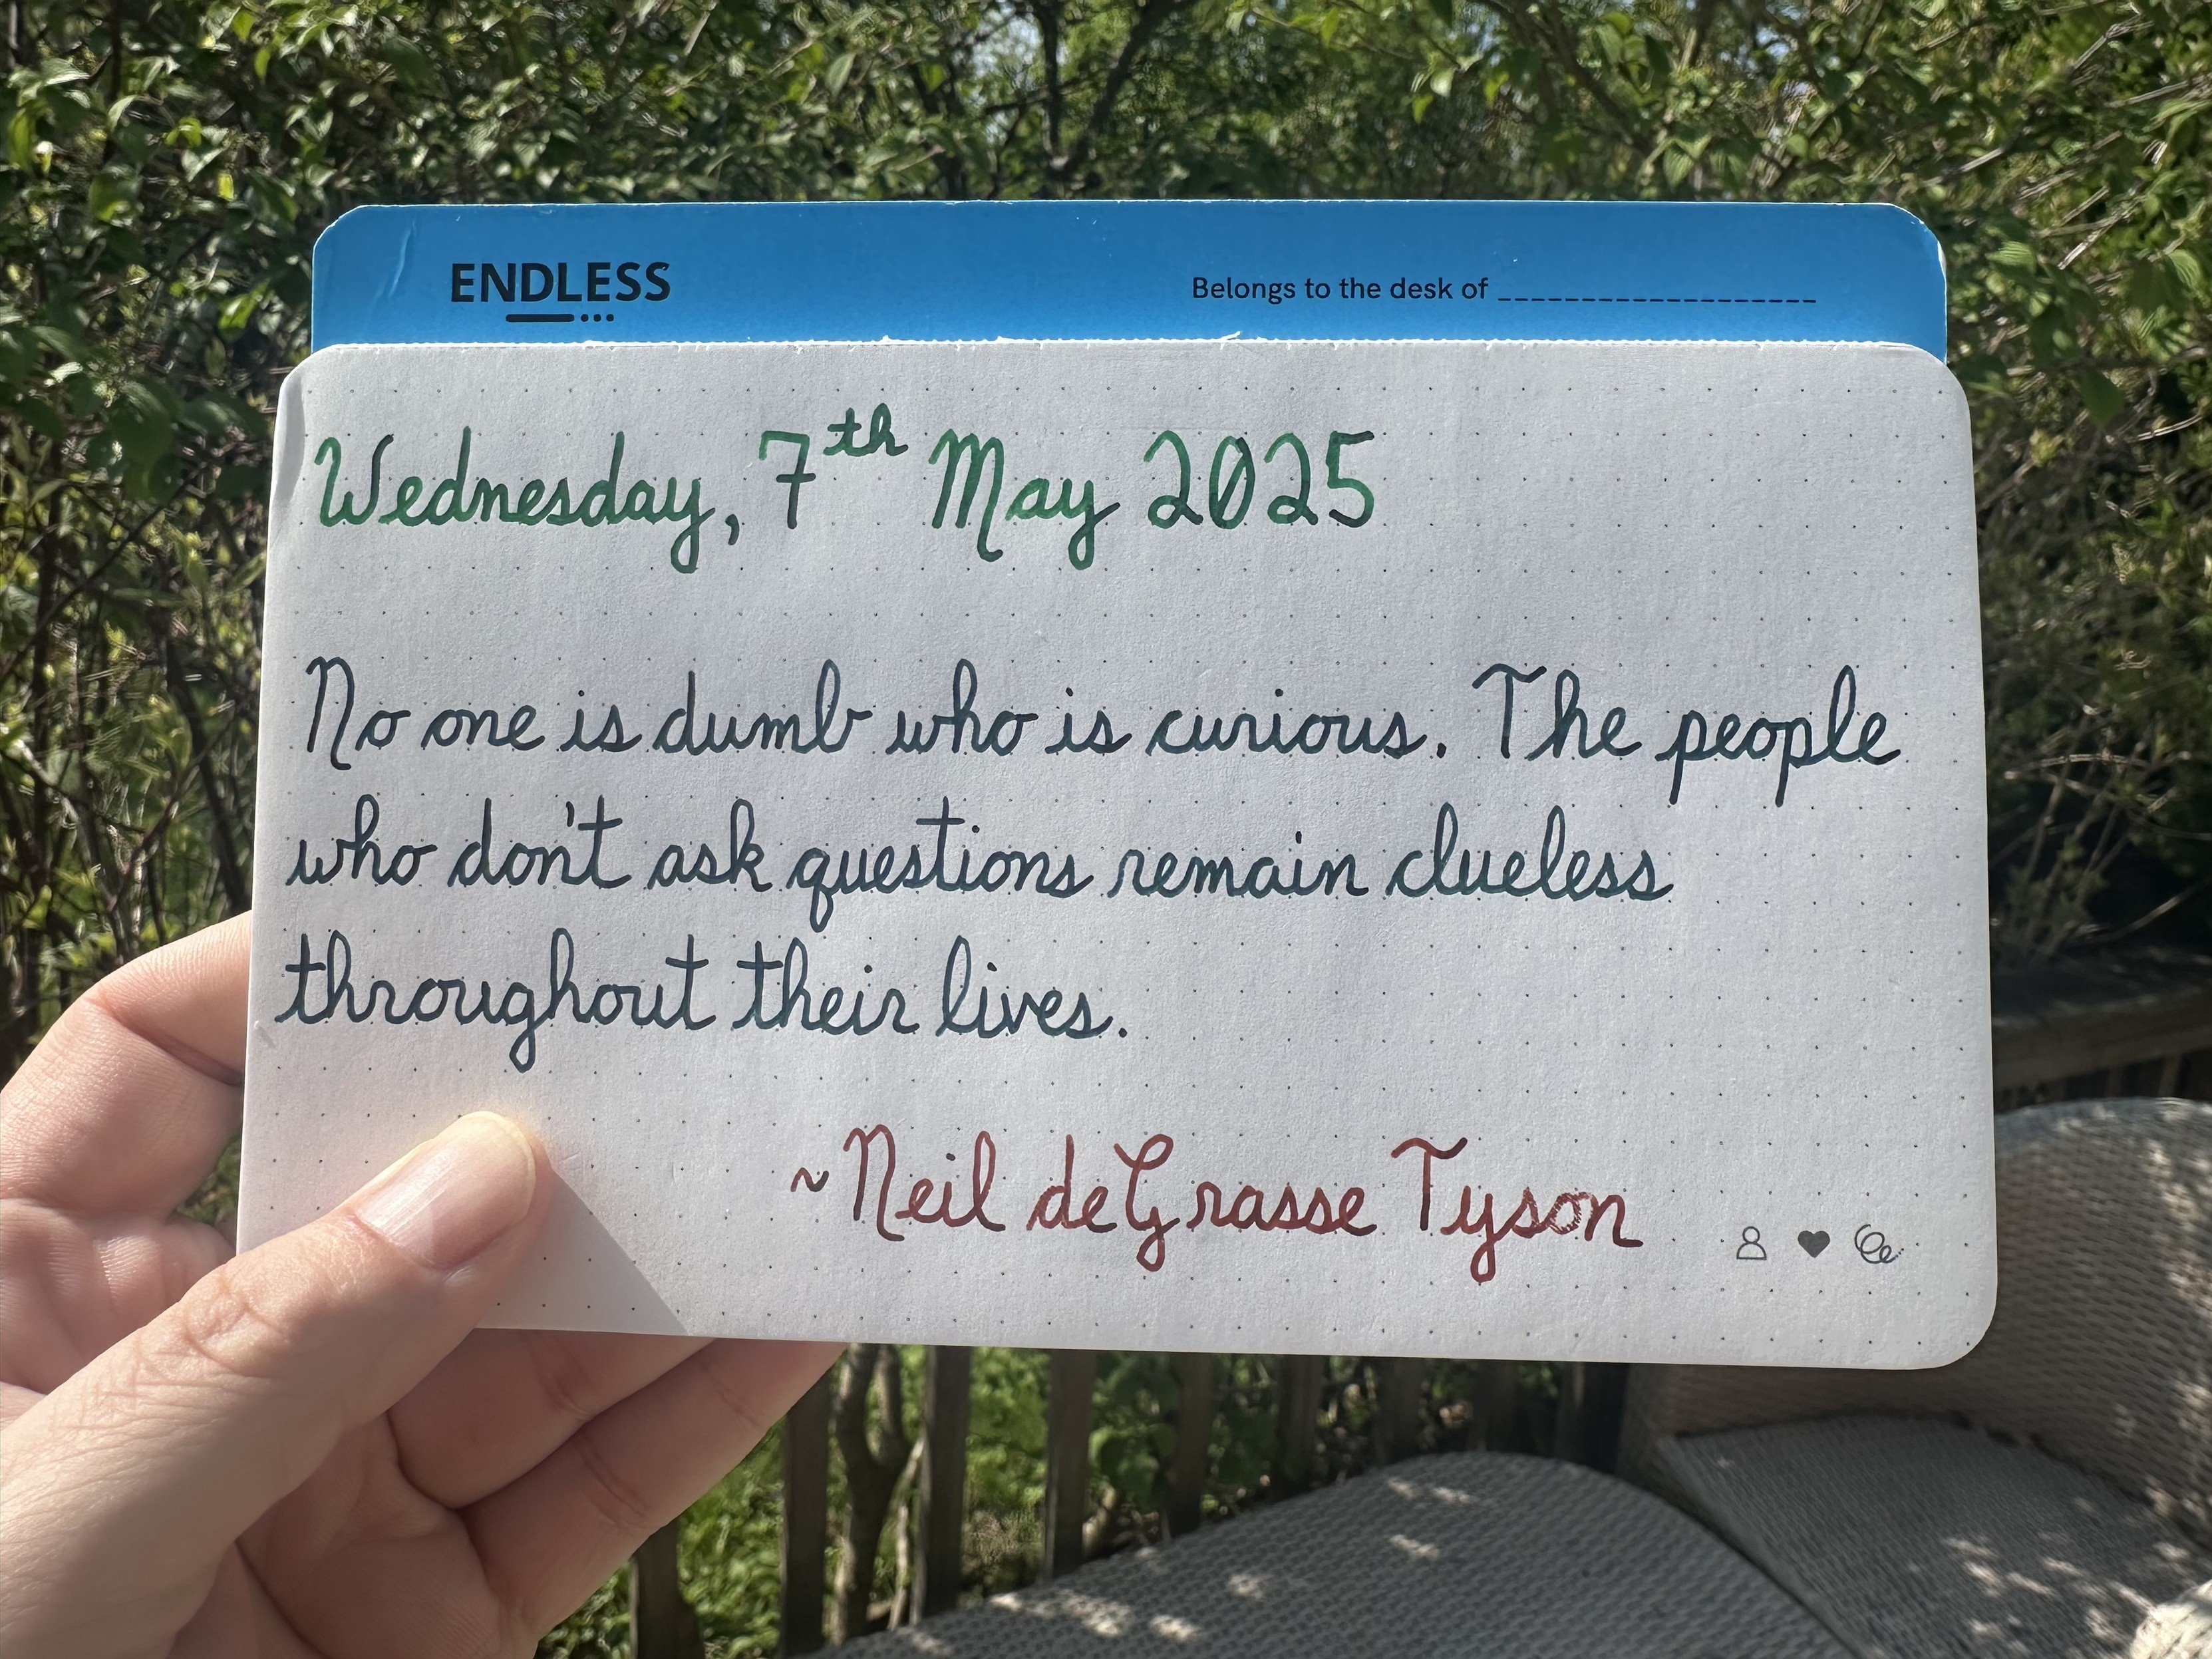 ENDLESS
Belongs to the desk of ___________________
Wednesday, 7th May 2025
No one is dumb who is curious. The people
who don't ask questions remain clueless
throughout their lives.
~Neil deGrasse Tyson